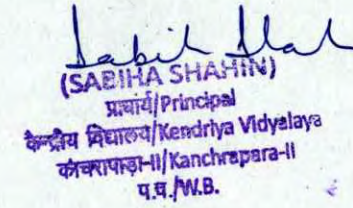 (SABIHA SHAHIN)
प्राचार्य/Principal
केन्द्रीय विद्यालय/Kendriya Vidyalaya
काँचरापाड़ा-II/Kanchrapara-II
प.बं./W.B.